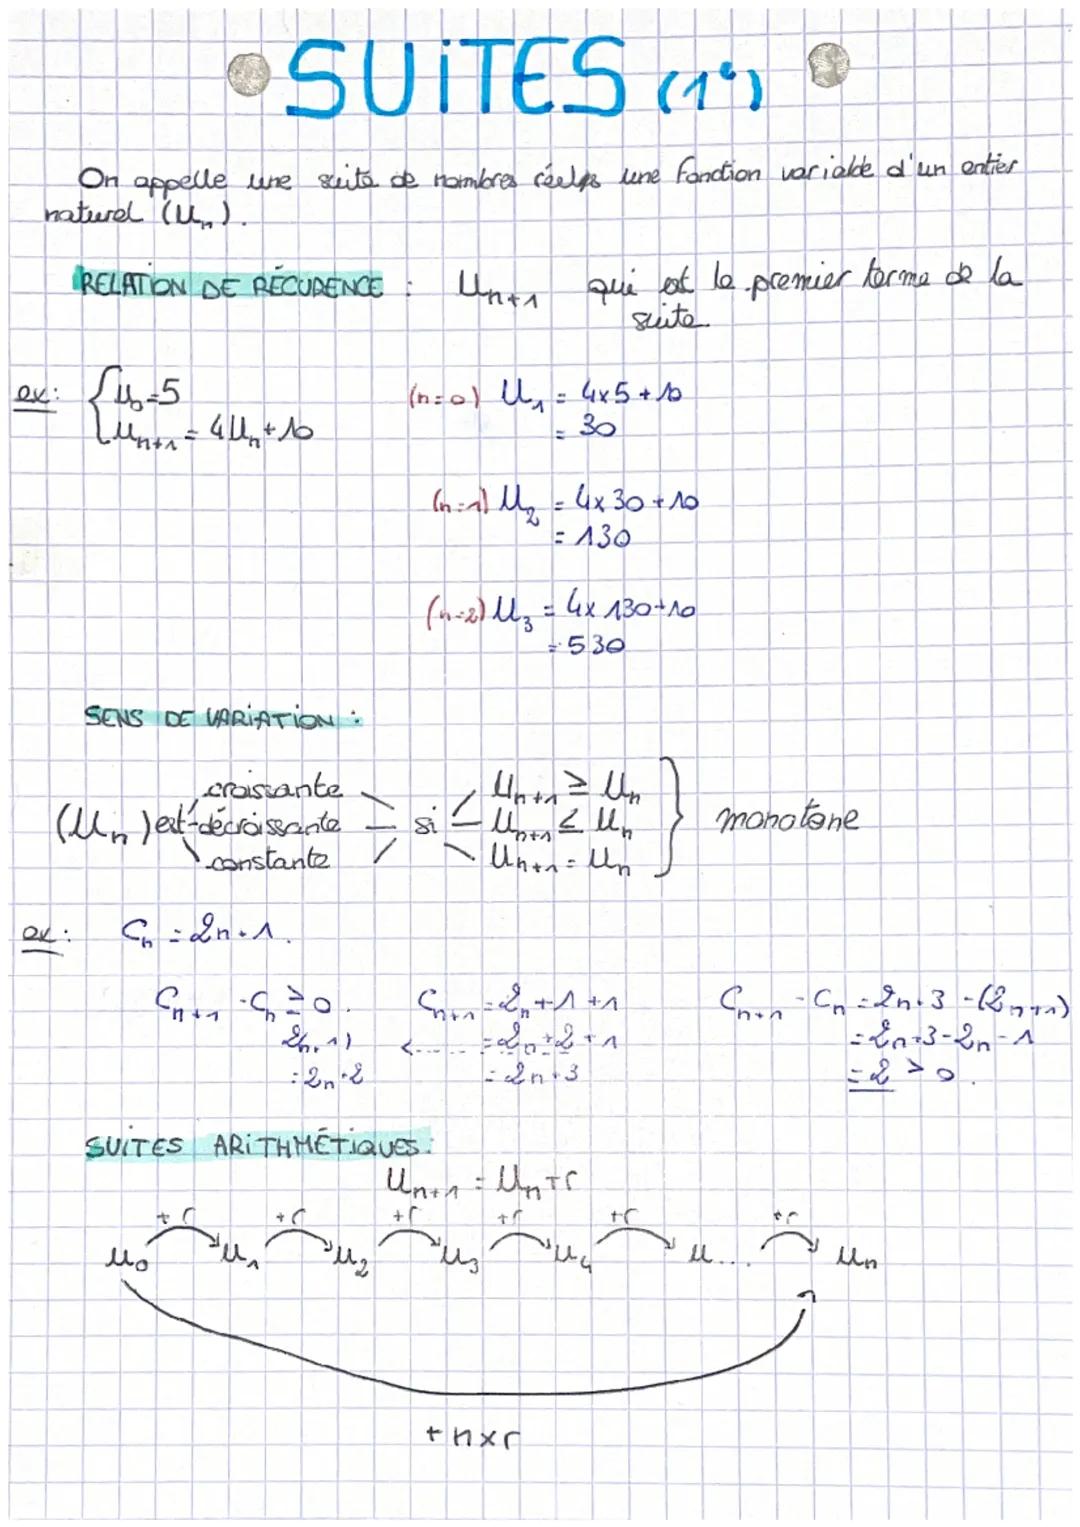 SUITES (1°)
On appelle une suite de nombres réelss une fonction variable d'un entier
naturel (Uₙ).
RELATION DE RÉCURENCE : Uₙ₊₁ qui est le premier terme de la
suite.
ex: { u₀=5
uₙ₊₁ = 4Uₙ+10
(n=0) U₁ = 4x5+10
= 30
(n=1) U₂ = 4x30+10
= 130
(n=2) U₃ = 4x130+10
= 530
SENS DE VARIATION :
(Uₙ) est croissante
décroissante
constante
si
Uₙ₊₁ ≥ Uₙ
Uₙ₊₁ ≤ Uₙ
Uₙ₊₁ = Uₙ
} monotone
ex: Cₙ = 2n+1.
Cₙ₊₁ - Cₙ ≥ 0.
2(n+1)
= 2n+2
Cₙ₊₁ = 2n+1+1
= 2n+2+1
= 2n+3
Cₙ₊₁ - Cₙ = 2n+3-(2n+1)
= 2n+3-2n-1
= 2 > 0.
SUITES ARITHMÉTIQUES:
Uₙ₊₁ = Uₙ+r
+r +r +r +r +r +r
u₀ u₁ u₂ u₃ u₄ u... uₙ
+ n×r